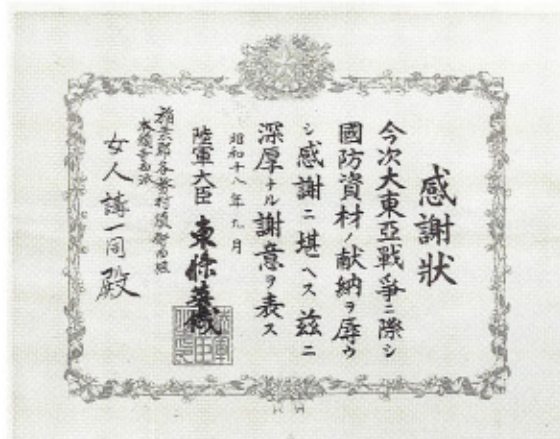 感謝狀
今次大東亞戰爭ニ際シ
國防資材ノ献納ヲ辱ウ
シ感謝ニ堪ヘス茲ニ
深厚ナル謝意ヲ表ス
昭和十八年九月
陸軍大臣 東條英機
女人講一同殿